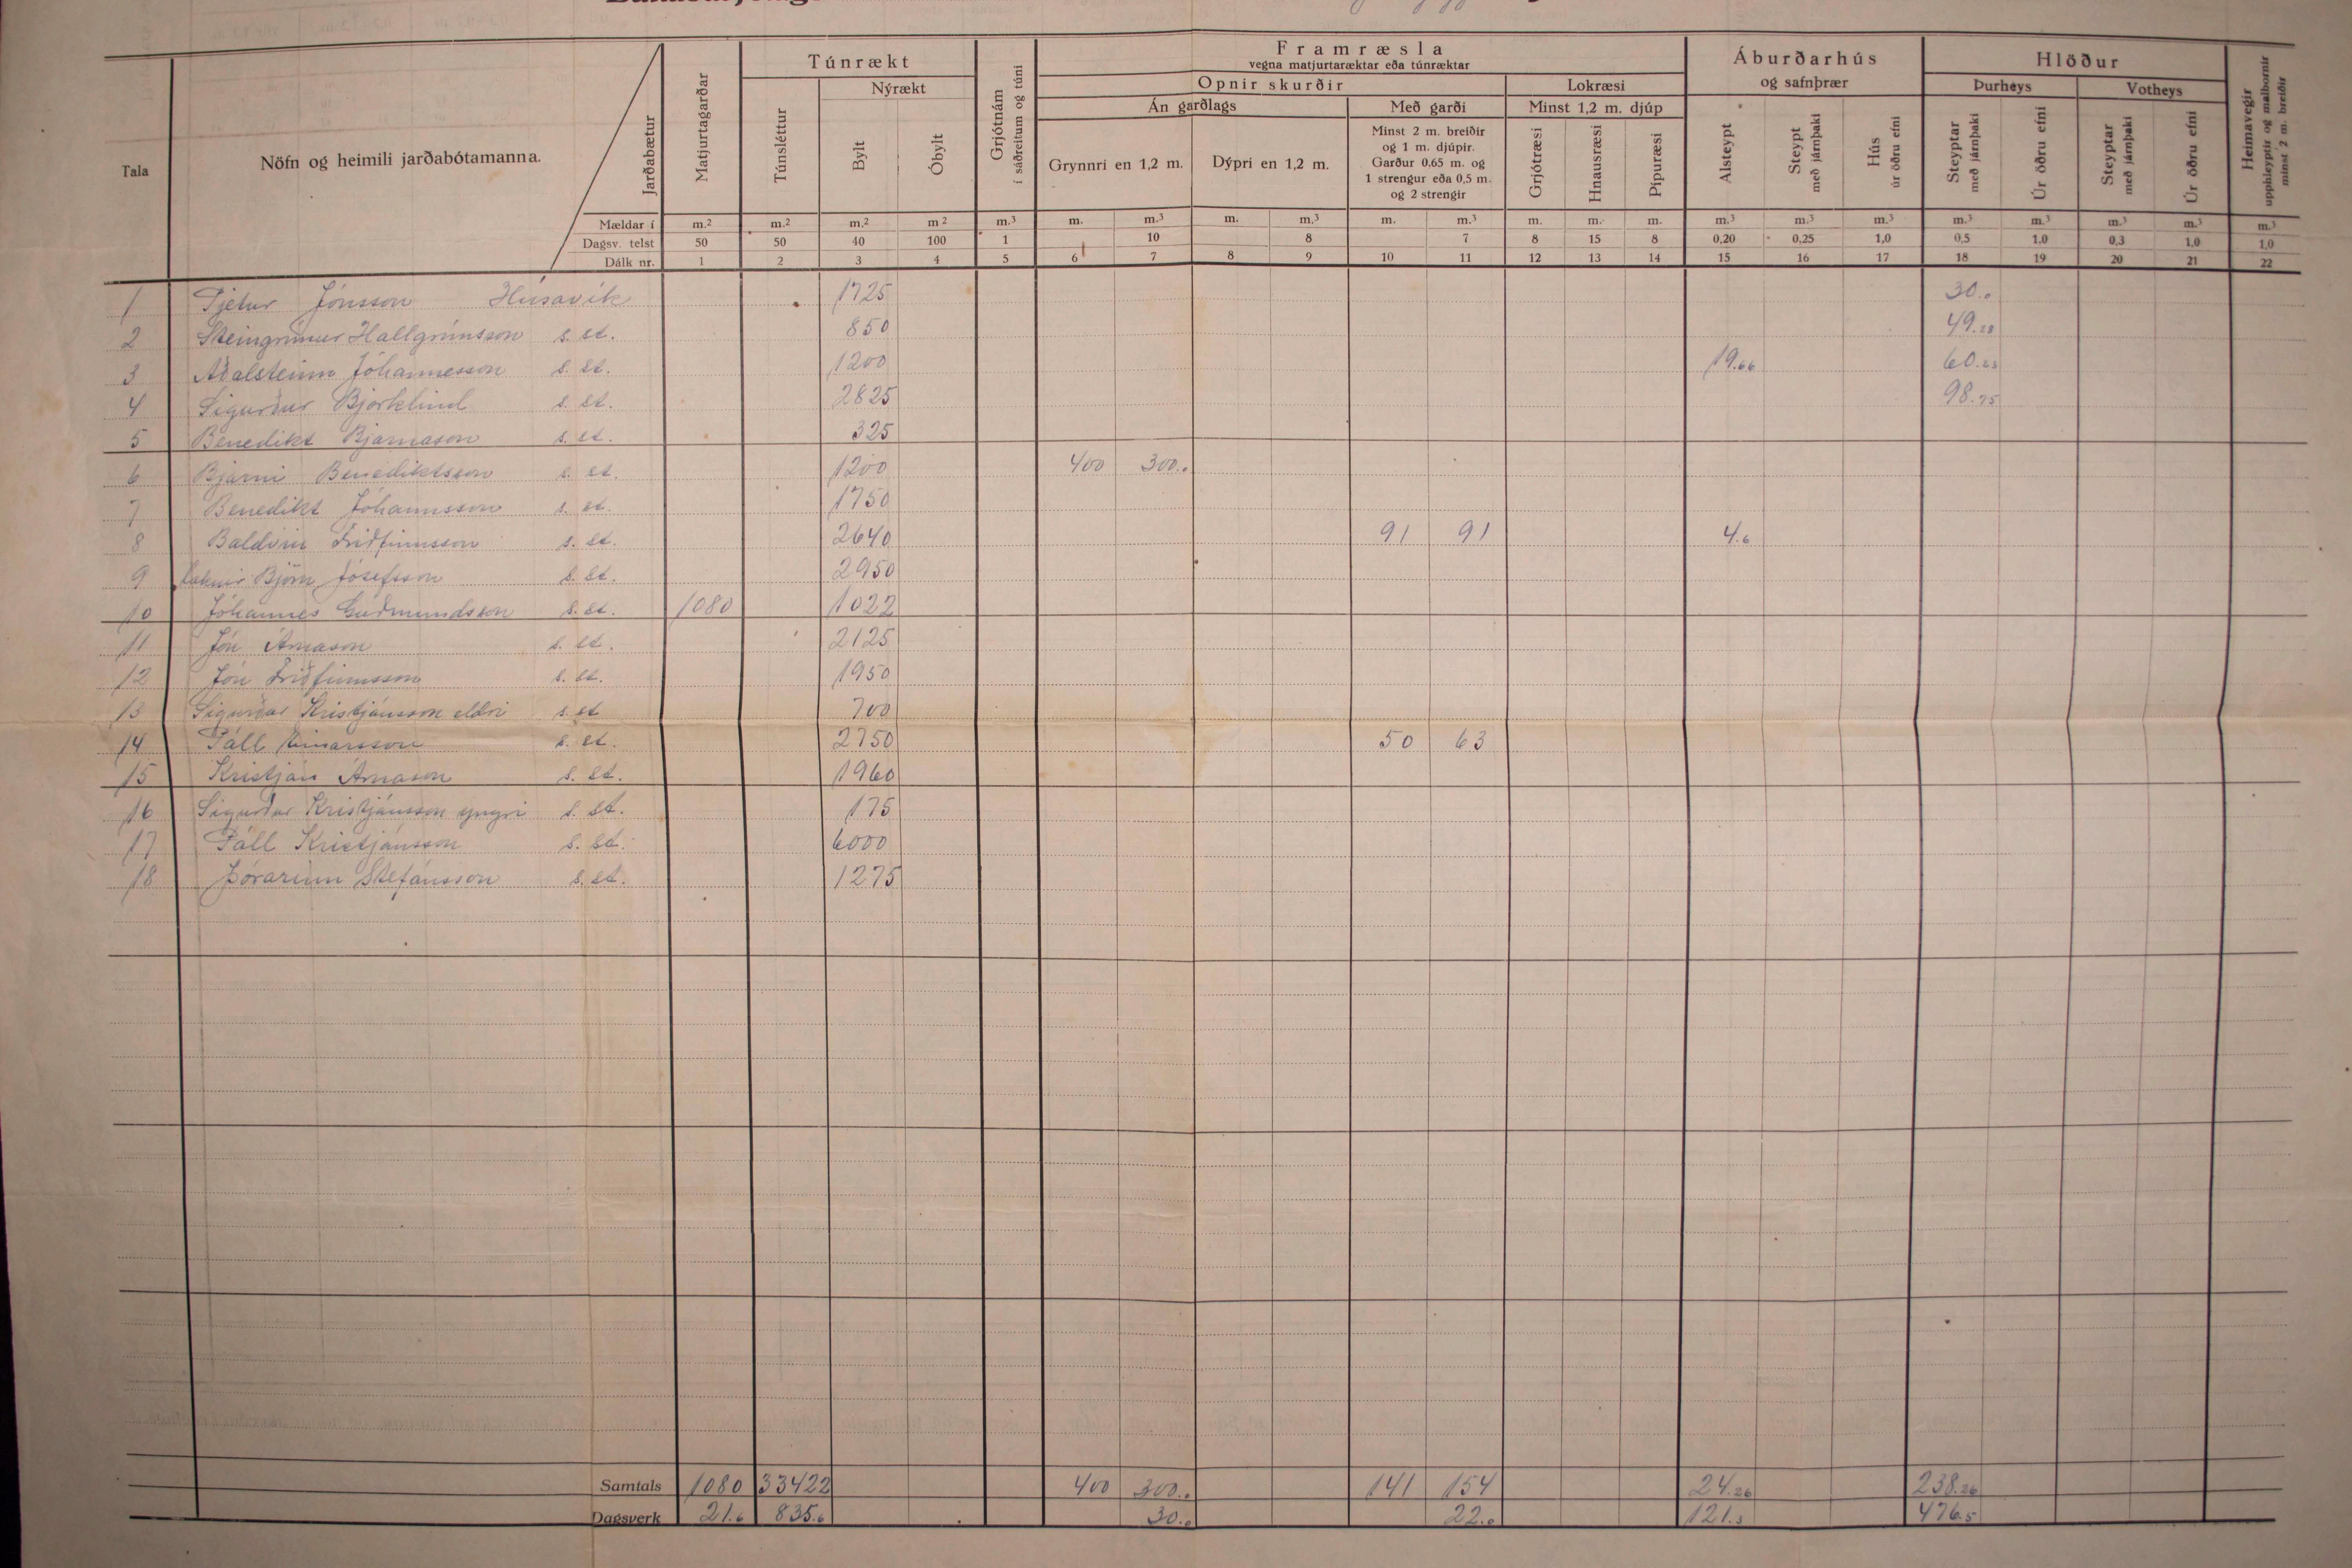 Túnrækt
Framræsla
vegna matjurtaræktar eða túnræktar
Áburðarhús
og safnþrær
Hlöður
Nýrækt
Opnir skurðir
Lokræsi
Þurheys
Votheys
Án garðlags
Með garði
Minst 1,2 m. djúp
Tala
Nöfn og heimili jarðabótamanna.
Jarðabætur
Matjurtagarðar
Túnsléttur
Bylt
Óbylt
Grjótnám
í sáðreitum og túni
Grynnri en 1,2 m.
Dýpri en 1,2 m.
Minst 2 m. breiðir
og 1 m. djúpir.
Garður 0.65 m. og
1 strengur eða 0,5 m.
og 2 strengir
Grjótræsi
Hnausræsi
Pípuræsi
Alsteypt
Steypt
með járnþaki
Hús
úr öðru efni
Steyptar
með járnþaki
Úr öðru efni
Steyptar
með járnþaki
Úr öðru efni
Heimavegir
upphleyptir og malbornir
minst 2 m. breiðir
Mældar í m.² m.² m.² m² m.³ m. m.³ m. m.³ m. m.³ m. m. m. m.³ m.³ m.³ m.³ m.³ m.³ m.³ m.³
Dagsv. telst 50 50 40 100 1 10 8 7 8 15 8 0,20 0,25 1,0 0,5 1,0 0,3 1,0 1,0
Dálk nr. 1 2 3 4 5 6 7 8 9 10 11 12 13 14 15 16 17 18 19 20 21 22
1 Pjetur Jónsson Húsavík 1725 30.0
2 Steingrímur Hallgrímsson s. st. 850 49.28
3 Aðalsteinn Jóhannesson s. st. 1200 19.66 60.23
4 Sigurður Bjorklind s. st. 2825 98.75
5 Benedikt Bjarnason s. st. 325
6 Bjarni Benediktsson s. st. 1200 400 300.0
7 Benedikt Jóhannsson s. st. 1750
8 Baldvin Friðfinnsson s. st. 2640 91 91 4.6
9 Læknir Björn Jósefsson s. st. 2950
10 Jóhannes Guðmundsson s. st. 1080 1022
11 Jón Árnason s. st. 2125
12 Jón Friðfinnsson s. st. 1950
13 Sigurður Kristjánsson eldri s. st 700
14 Páll Einarsson s. st. 2750 50 63
15 Kristján Árnason s. st. 1960
16 Sigurður Kristjánsson yngri s. st. 175
17 Páll Kristjánsson s. st. 6000
18 Þórarinn Stefánsson s. st. 1275
Samtals 1080 33422 400 300.0 141 154 24.26 238.26
Dagsverk 21.6 835.6 30.0 22.0 121.3 476.5